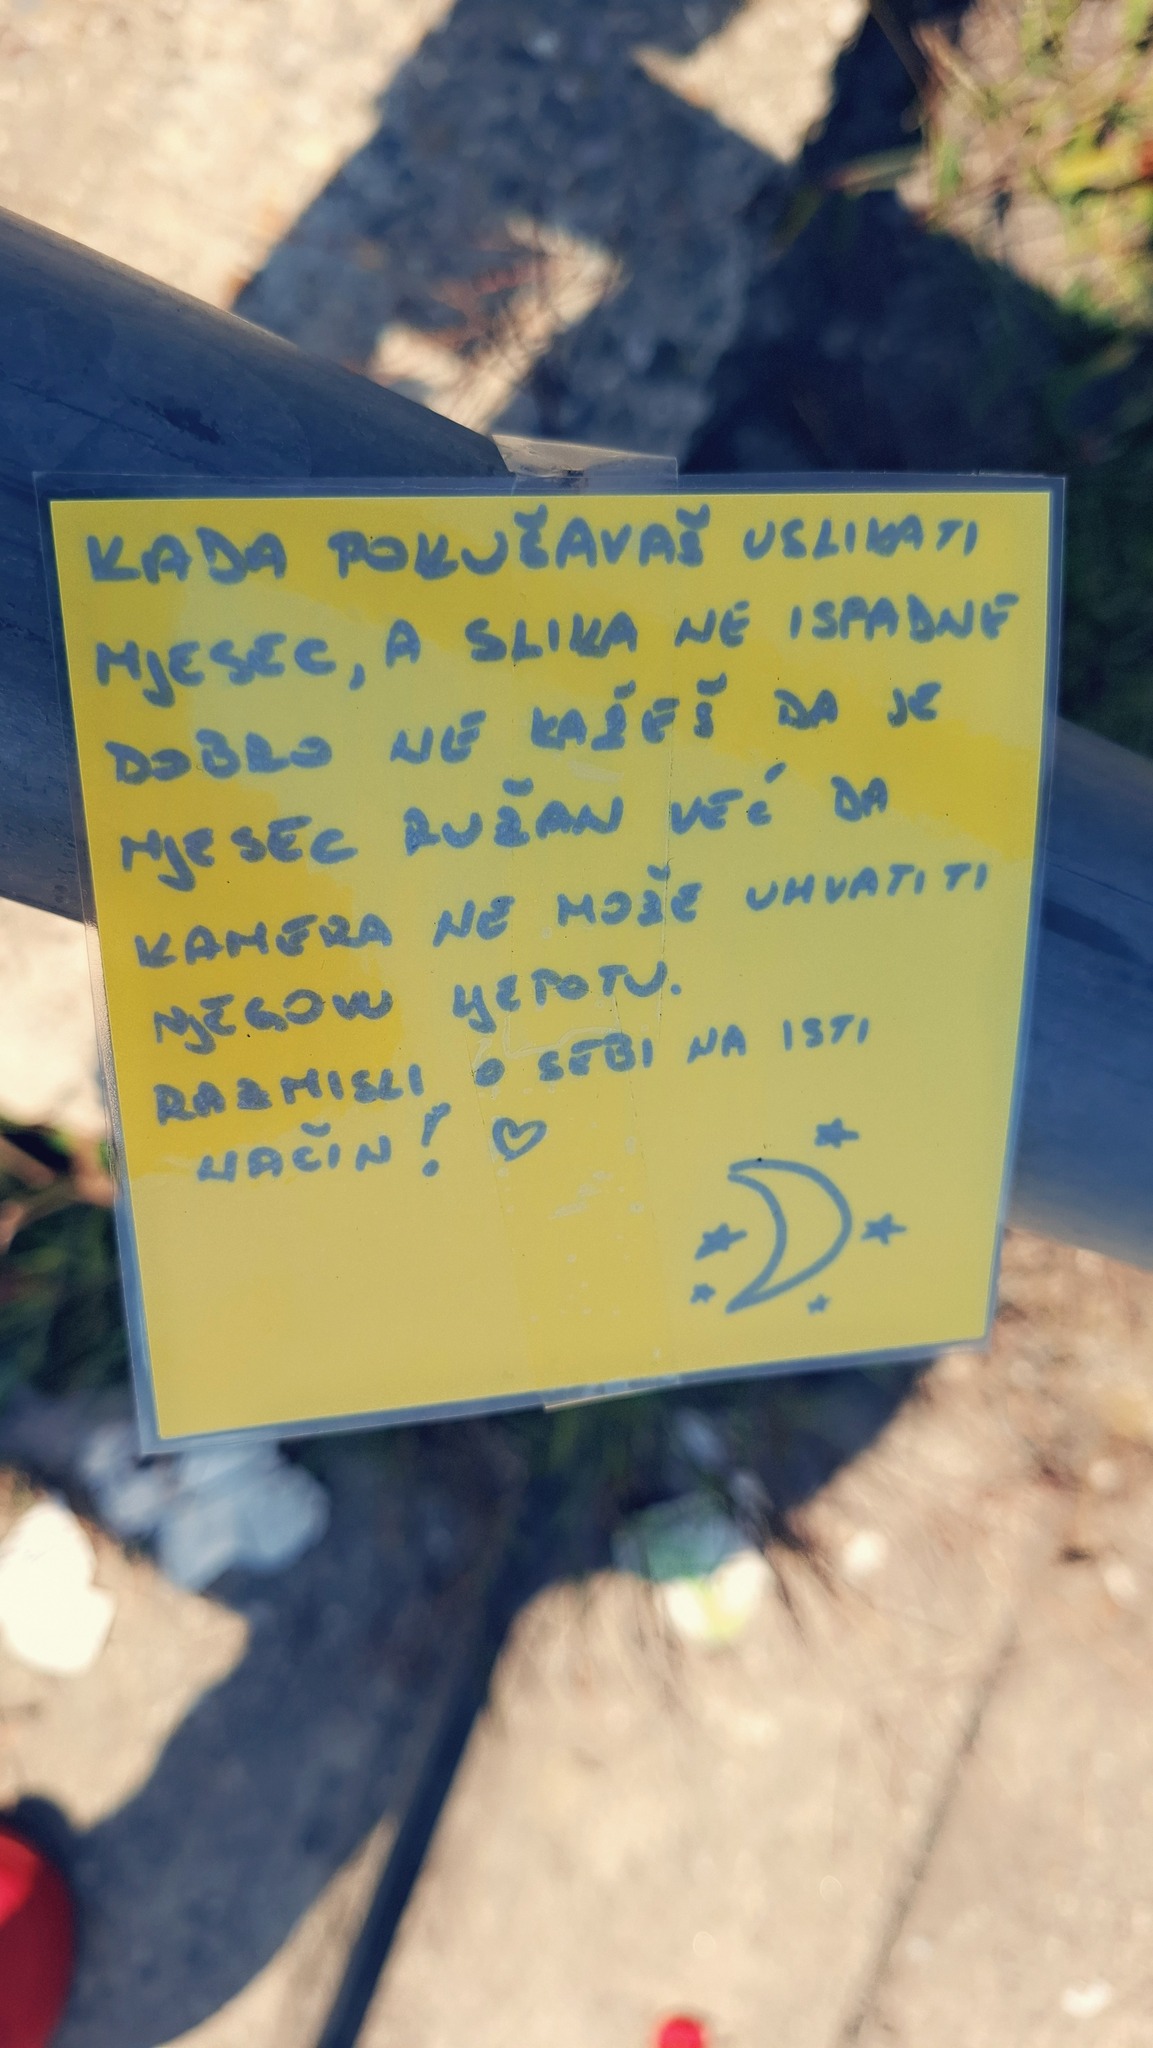 KADA POKUŠAVAŠ USLIKATI
MJESEC, A SLIKA NE ISPADNE
DOBRO NE KAŽEŠ DA JE
MJESEC RUŽAN VEĆ DA
KAMERA NE MOŽE UHVATITI
NJEGOVU LJEPOTU.
RAZMISLI O SEBI NA ISTI
NAČIN! ♡